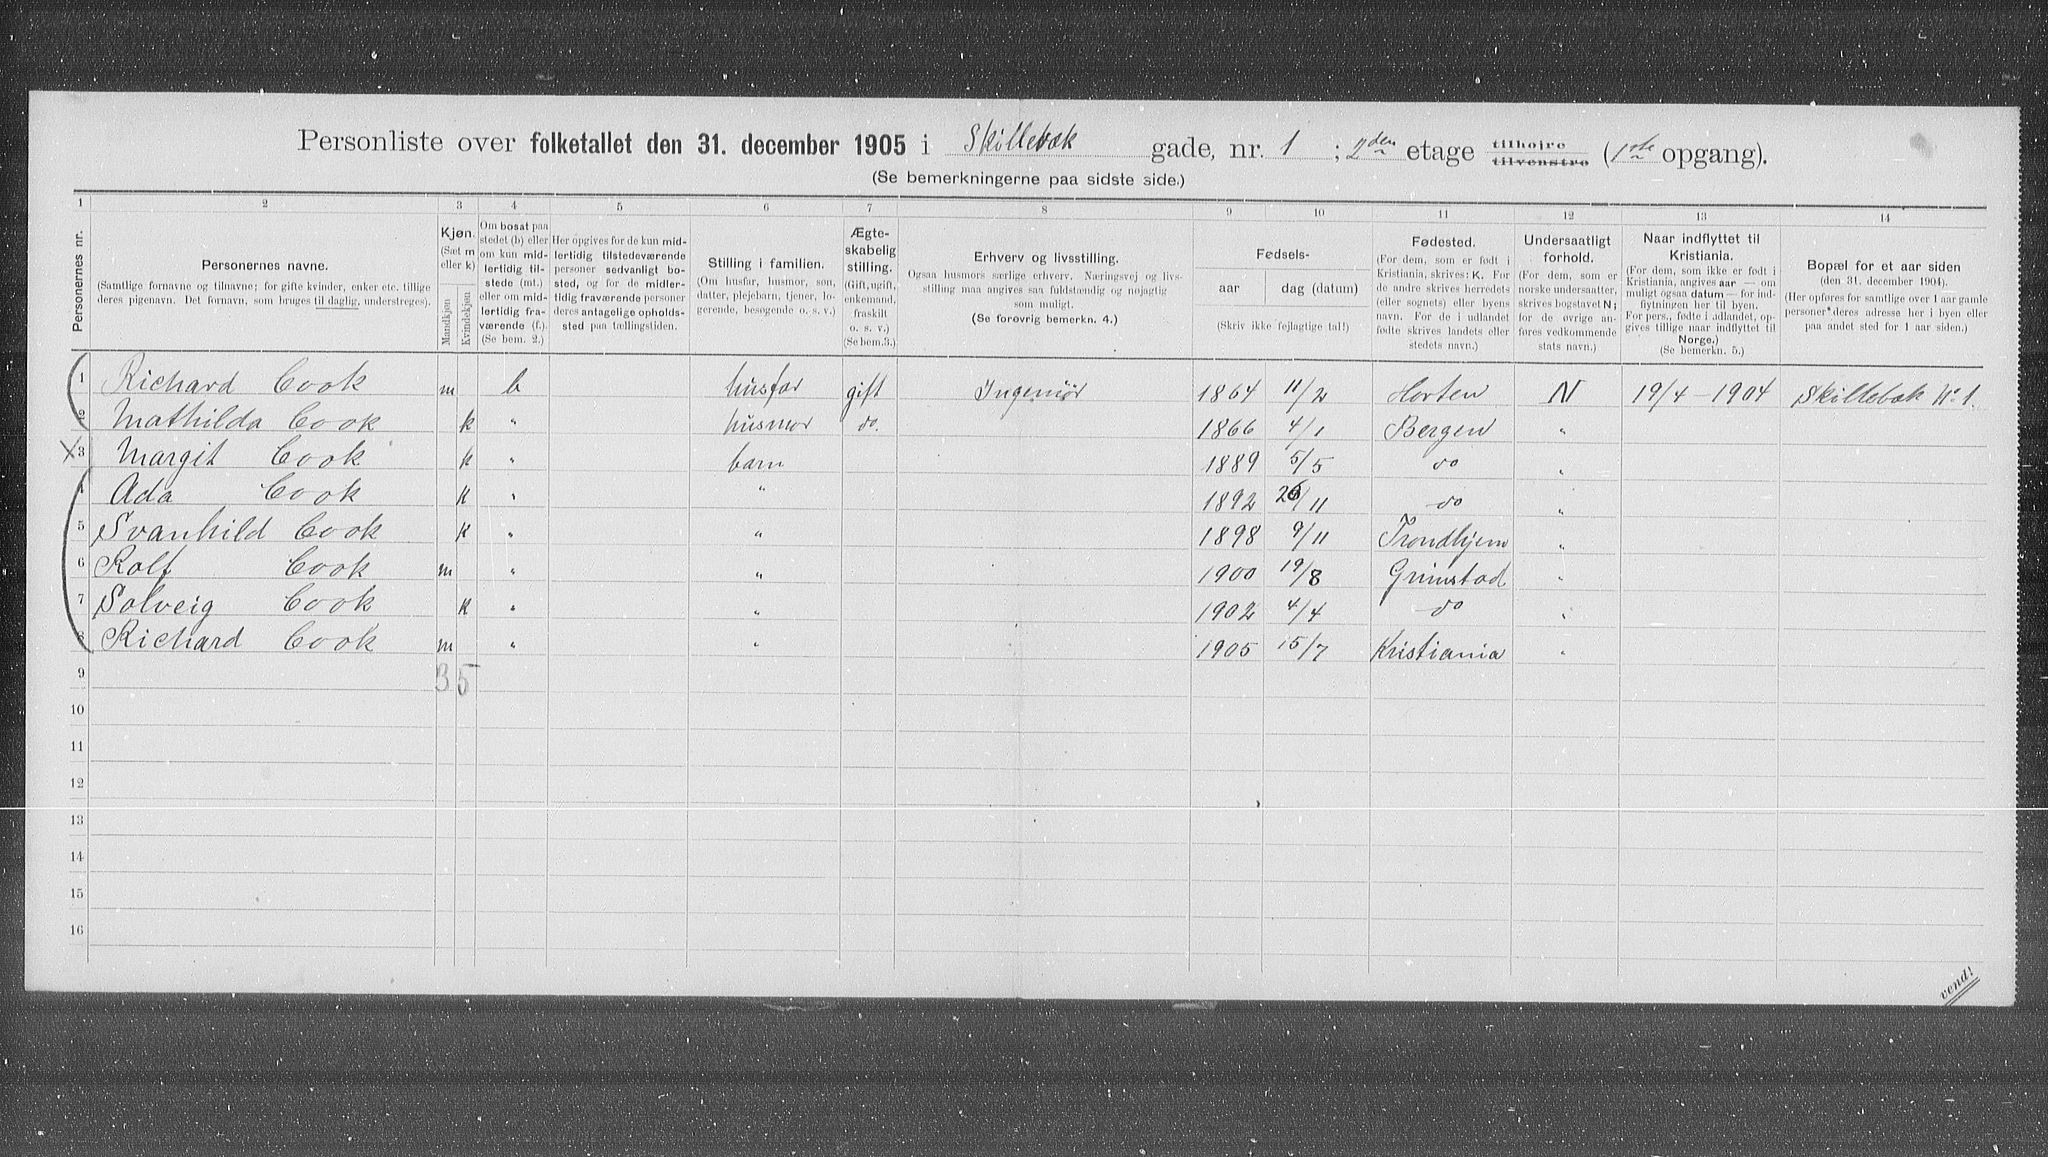 Personliste over folketallet den 31. december 1905 i Skillebæk gade, nr. 1 ; 2den etage tilhøjre tilvenstre (1ste opgang).
(Se bemerkningerne paa sidste side.)
1 2 3 4 5 6 7 8 9 10 11 12 13 14
Personernes nr.
Personernes navne.
(Samtlige fornavne og tilnavne; for gifte kvinder, enker etc. tillige deres pigenavn. Det fornavn, som bruges til daglig, understreges).
Kjøn.
(Sæt m eller k)
Mandkjøn
Kvindekjøn
Om bosat paa stedet (b) eller om kun midlertidig tilstede (mt.) eller om midlertidig fraværende (f.). (Se bem. 2.)
Her opgives for de kun midlertidig tilstedeværende personer sedvanligt bosted, og for de midlertidig fraværende personer deres antagelige opholdssted paa tællingstiden.
Stilling i familien.
(Om husfar, husmor, søn, datter, plejebarn, tjener, logerende, besøgende o. s. v.)
Ægteskabelig stilling.
(Gift, ugift, enkemand, fraskilt o. s. v.)
(Se bem. 3.)
Erhverv og livsstilling.
Ogsaa husmors særlige erhverv. Næringsvej og livsstilling maa angives saa fuldstændig og nøjagtig som muligt.
(Se forøvrig bemerkn. 4.)
Fødsels-
aar dag (datum)
(Skriv ikke fejlagtige tal!)
Fødested.
(For dem, som er født i Kristiania, skrives: K. For de andre skrives herredets (eller sognets) eller byens navn. For de i udlandet fødte skrives landets eller stedets navn.)
Undersaatligt forhold.
(For dem, som er norske undersaatter, skrives bogstavet N; for de øvrige anføres vedkommende stats navn.)
Naar indflyttet til Kristiania.
(For dem, som ikke er født i Kristiania, angives aar — om muligt ogsaa datum — for indflytningen her til byen. For pers., fødte i udlandet, opgives tillige naar indflyttet til Norge.)
(Se bemerkn. 5.)
Bopæl for et aar siden
(den 31. december 1904).
(Her opføres for samtlige over 1 aar gamle personer deres adresse her i byen eller paa andet sted for 1 aar siden.)
1 Richard Cook m b husfar gift Ingeniør 1864 11/2 Horten N 19/4 - 1904 Skillebæk No 1.
2 Mathilda Cook k " husmor do. 1866 4/1 Bergen "
X 3 Margit Cook k " barn 1889 5/5 do "
4 Ada Cook k " " 1892 26/11 do "
5 Svanhild Cook k " " 1898 9/11 Trondhjem "
6 Rolf Cook m " " 1900 19/8 Grimstad "
7 Solveig Cook k " " 1902 4/4 do "
8 Richard Cook m " " 1905 15/7 Kristiania "
9 3 5
10
11
12
13
14
15
16
vend!